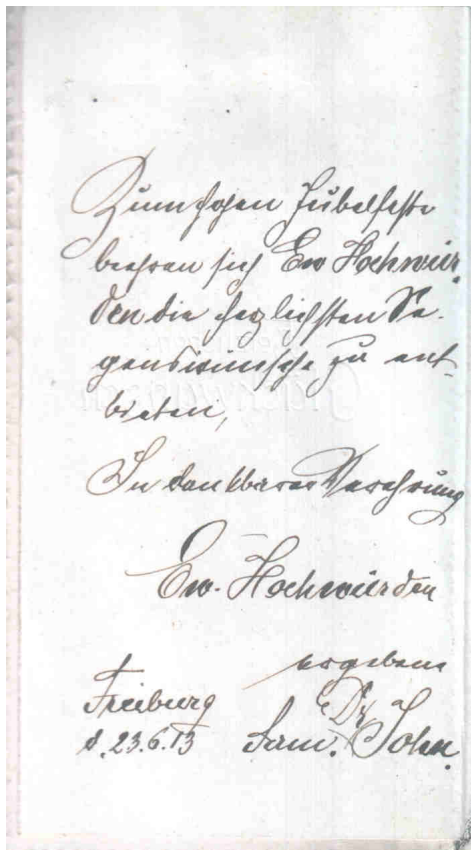 Zum hohen Jubelfeste
beehren sich Ew Hochwür-
den die herzlichsten Se-
genswünsche zu ent-
bieten,
In dankbarer Verehrung
Ew. Hochwürden
ergebene
Freiburg Dr
d. 23.6.13 Fam. John.